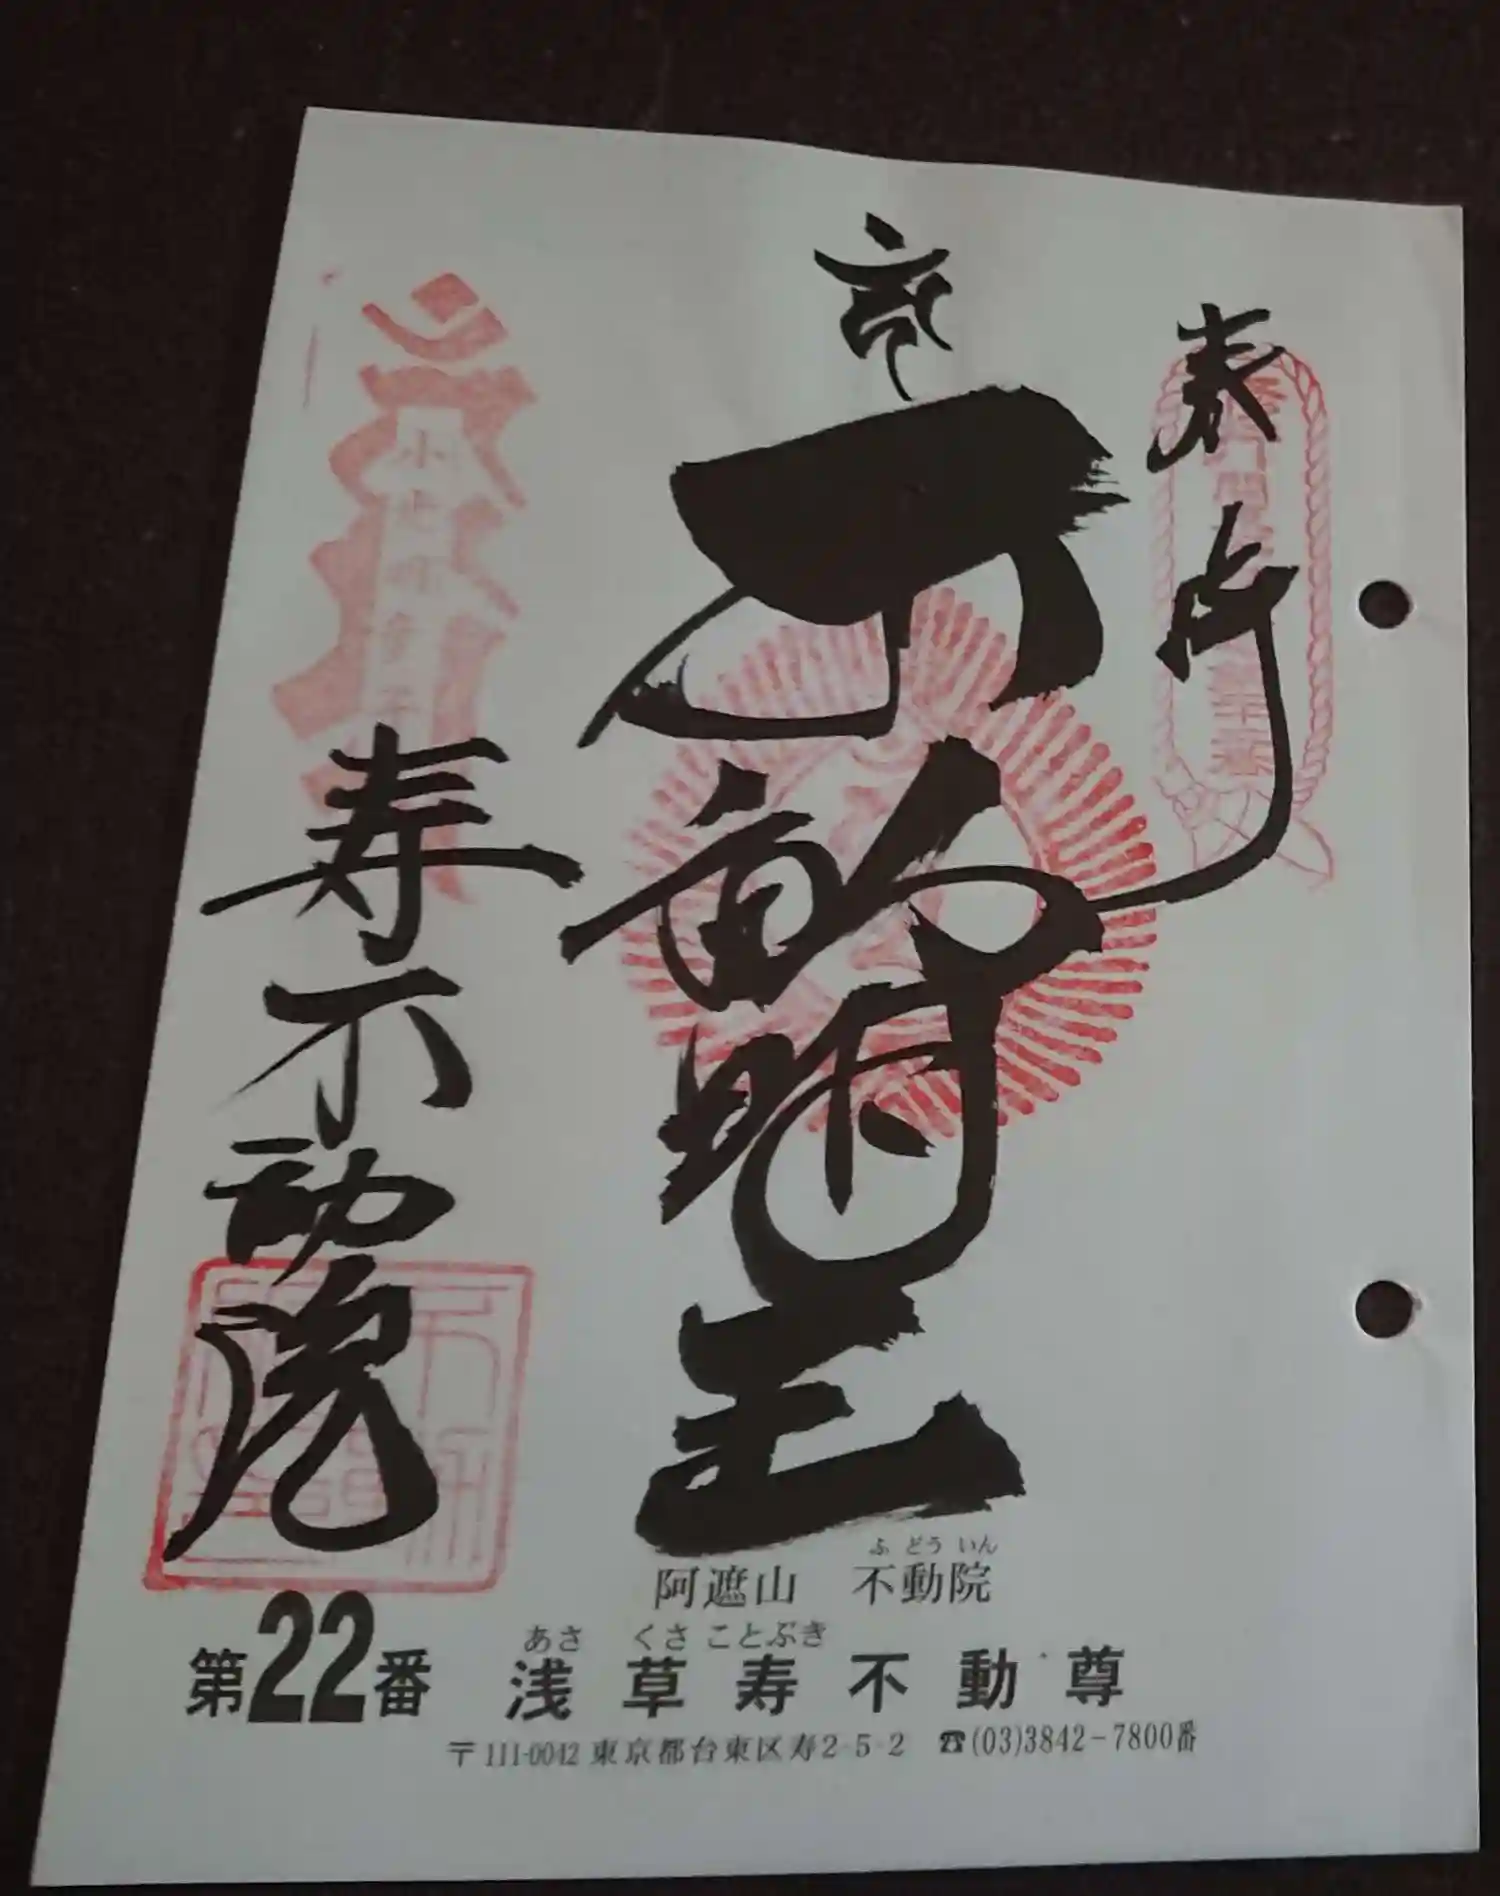 奉拝
不動明王
寿不動院
ふどういん
阿遮山 不動院
あさ くさ ことぶき
第22番 浅草寿不動尊
〒111-0042 東京都台東区寿2-5-2 ☎(03)3842-7800番